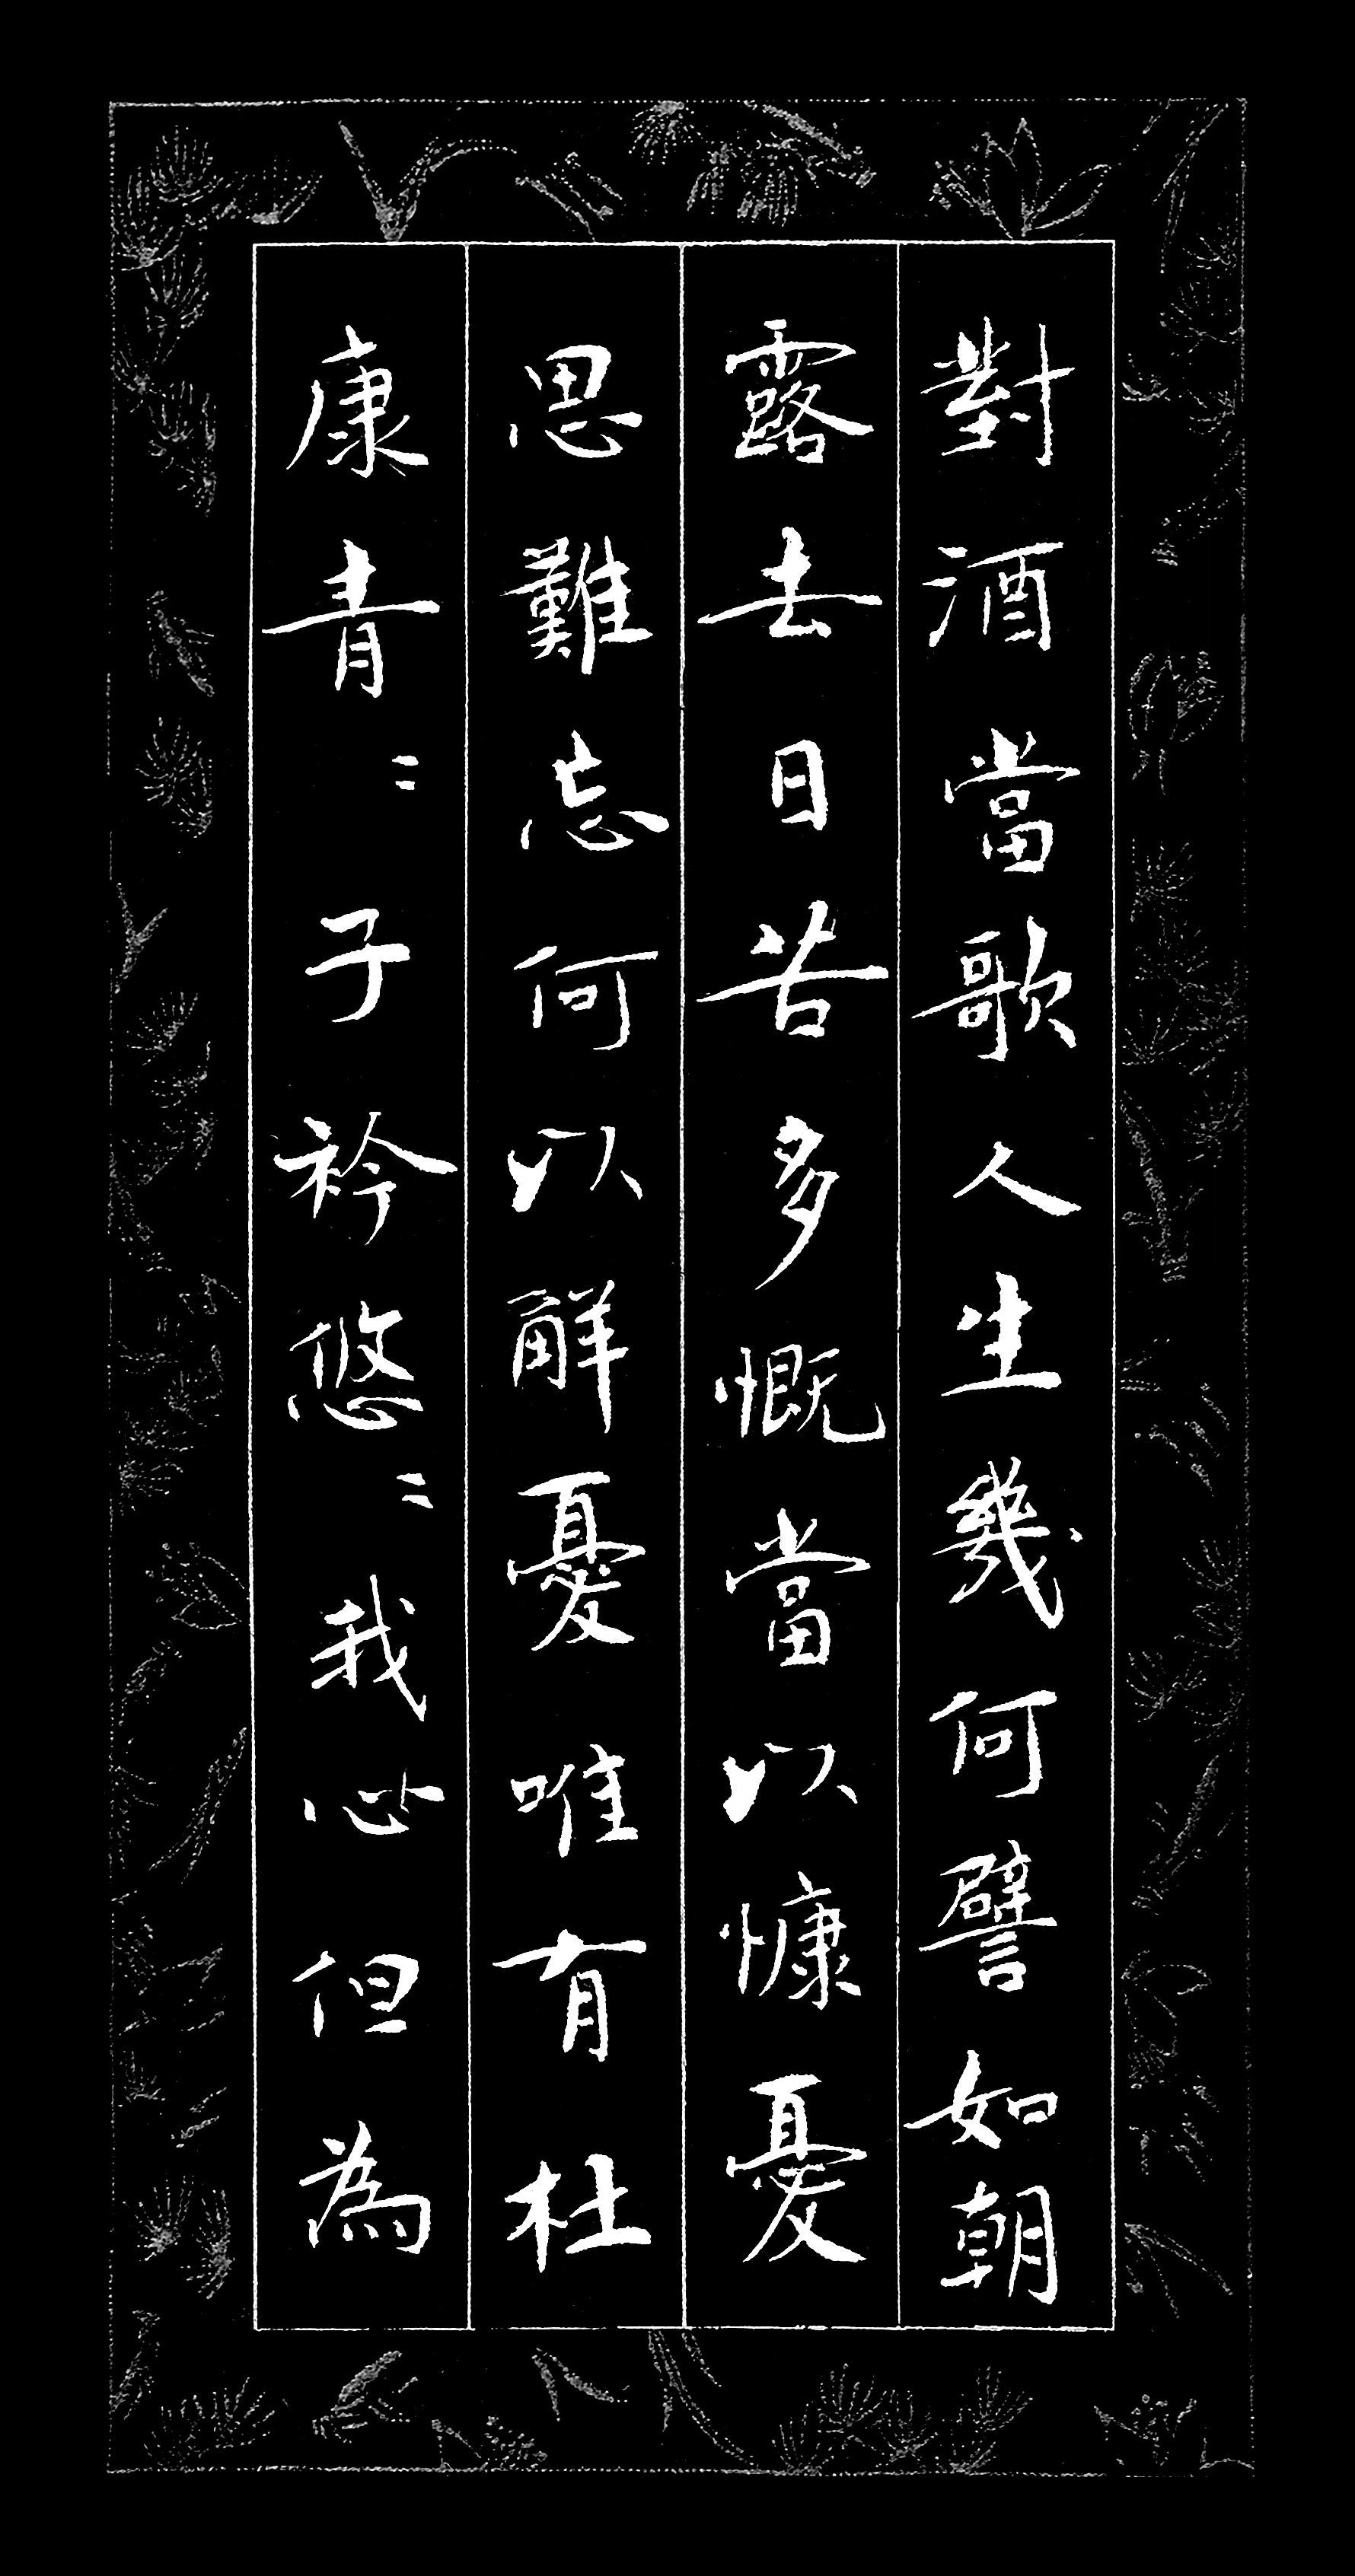 對酒當歌人生幾何譬如朝
露去日苦多慨當以慷憂
思難忘何以解憂唯有杜
康青〻子衿悠〻我心但為